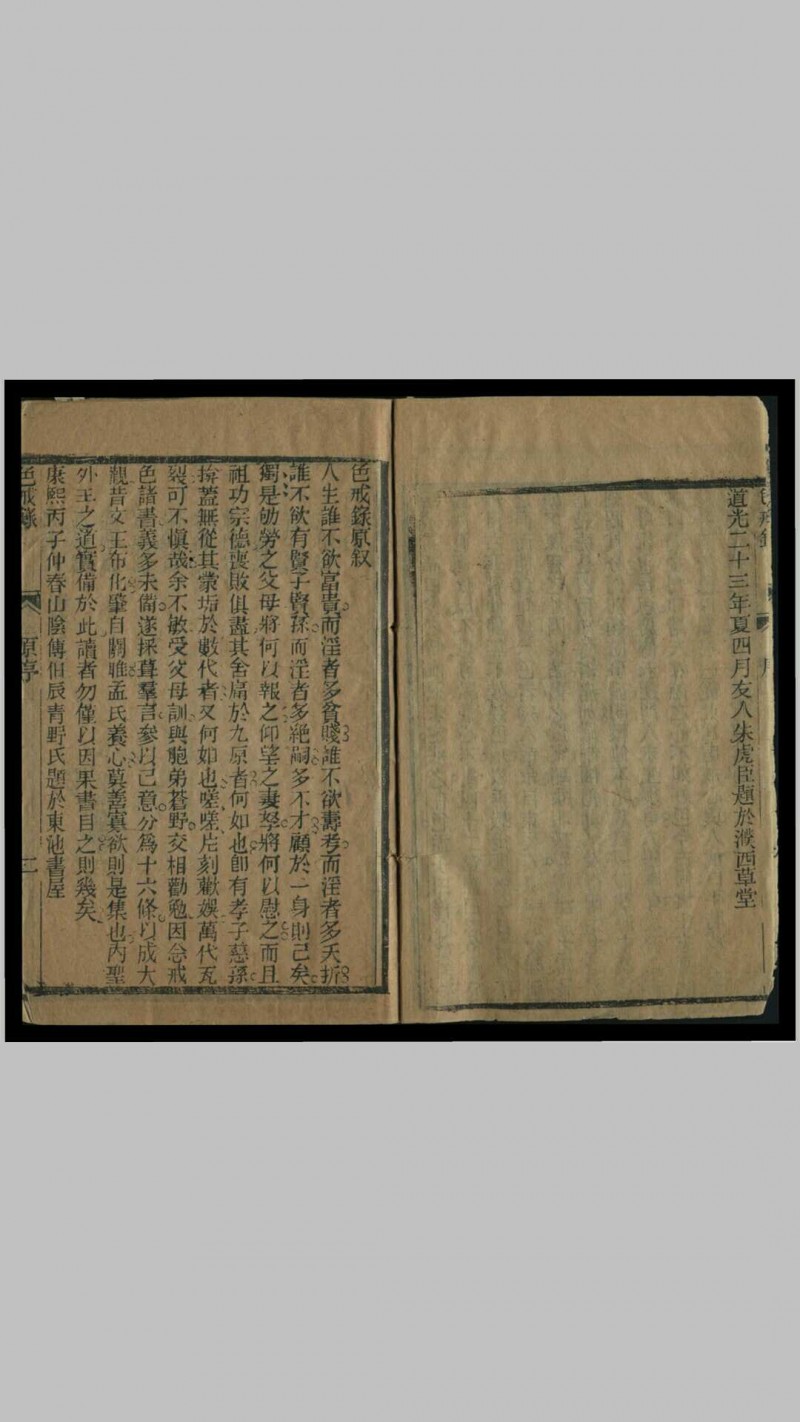 道光二十三年夏四月友人朱虎臣題於濮西草堂
色戒錄原叙
人生誰不欲富貴而淫者多貧賤誰不欲壽考而淫者多夭折
誰不欲有賢子賢孫而淫者多絕嗣多不才顧於一身則已矣
獨是劬勞之父母將何以報之仰望之妻孥將何以慰之而且
祖功宗德喪敗俱盡其含屈於九原者何如也卽有孝子慈孫
揜蓋無從其蒙垢於數代者又何如也嗟嗟片刻歡娛萬代瓦
裂可不愼哉余不敏受父母訓與胞弟蒼野交相勸勉因念戒
色諸書義多未備遂採葺羣言參以己意分爲十六條以成大
觀昔文王布化肇自關雎孟氏養心莫善寡欲則是集也內聖
外王之道實備於此讀者勿僅以因果書目之則幾矣
康熙丙子仲春山陰傅伯辰青野氏題於東池書屋
色戒錄
原序
二